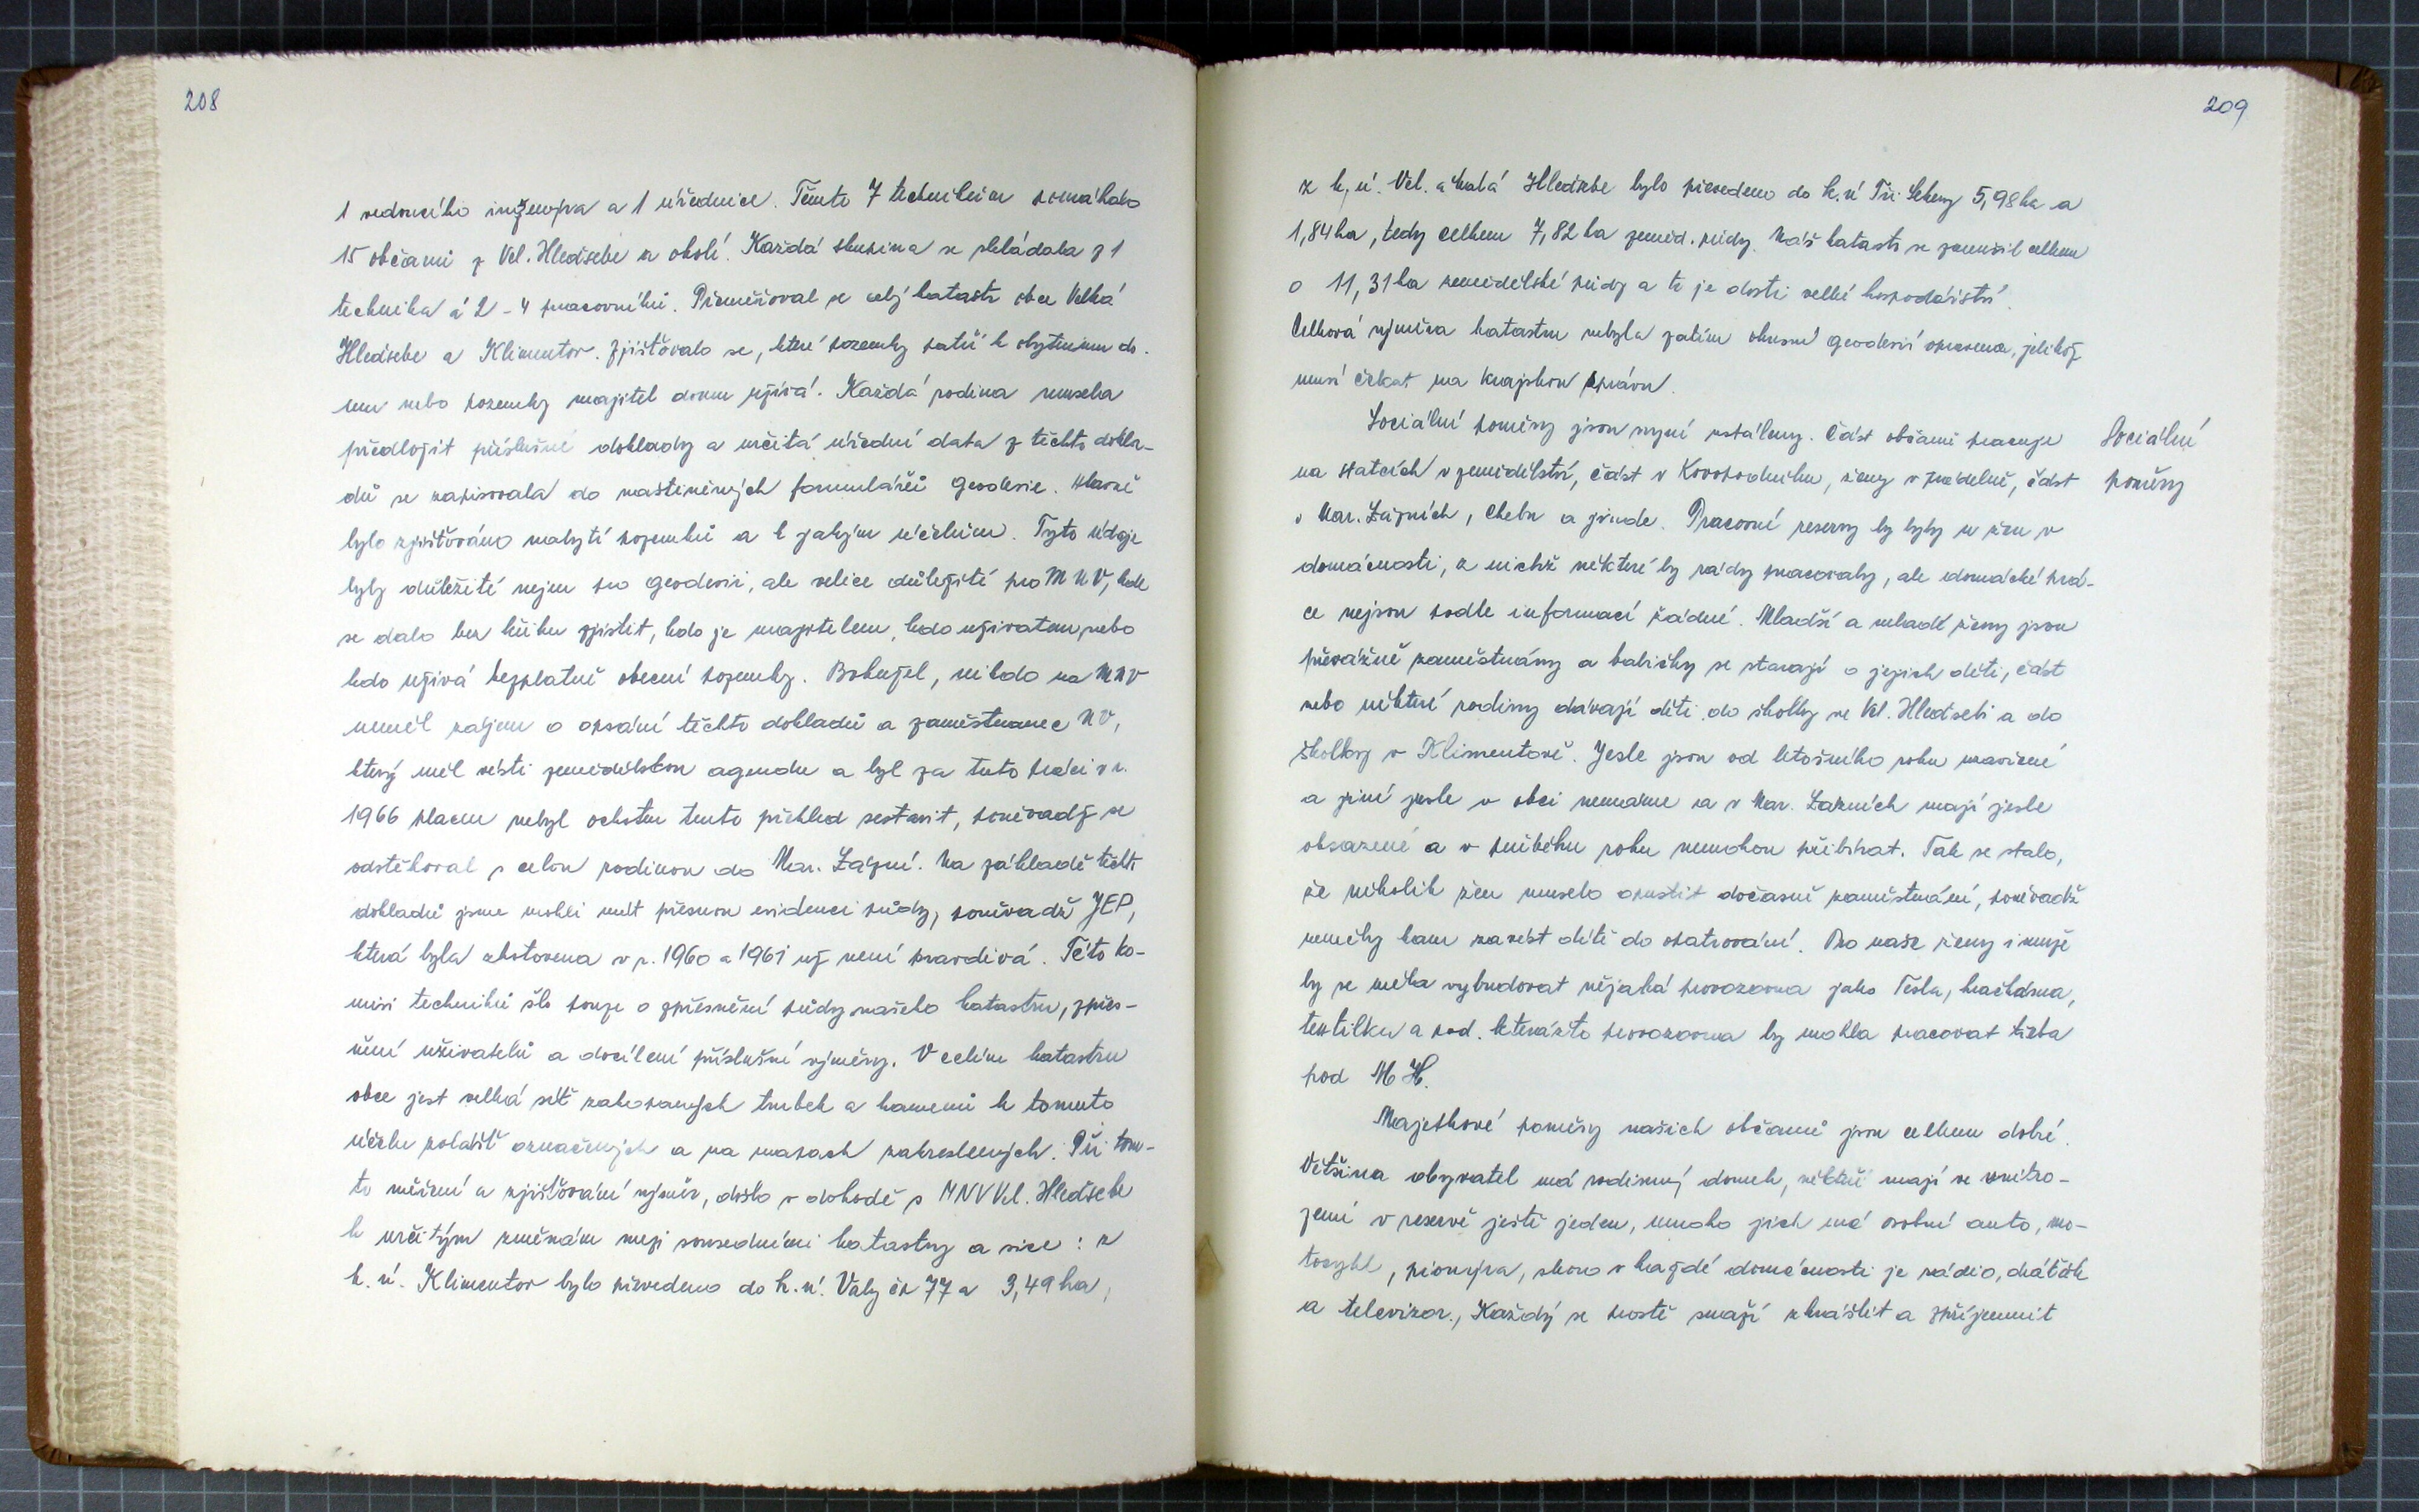 208
1 vedoucího inženýra a 1 úřednice. Těmto 7 technikům pomáhalo
15 občanů z Vel. Hleďsebe a okolí. Každá skupina se skládala z 1
technika á 2 - 4 pracovníků. Přeměřoval se celý katastr obce Velká
Hleďsebe a Klimentov. Zjišťovalo se, které pozemky patří k obytnému do-
mu nebo pozemky majitel domu užívá. Každá rodina musela
předložit příslušné doklady a určitá úřední data z těchto dokla-
dů se zapisovala do naštěněných formulářů geodesie. Hlavně
bylo zjišťováno nabytí pozemků a k jakým účelům. Tyto údaje
byly důležité nejen pro geodesii, ale velice důležité pro MNV, kde
se dalo bez křiku zjistit, kdo je majitelem, kdo uživatem, nebo
kdo užívá bezplatně obecní pozemky. Bohužel, nikdo na MNV
neměl zájem o opsání těchto dokladů a zaměstnanec NV,
který měl vésti zemědělskou agendu a byl za tuto práci v r.
1966 placen nebyl ochoten tento přehled sestavit, poněvadž se
odstěhoval s celou rodinou do Mar. Lázní. Na základě těchto
dokladů jsme mohli mít přesnou evidenci půdy, poněvadž JEP,
která byla zhotovena v r. 1960 a 1961 už není pravdivá. Této ko-
misi techniků šlo pouze o zpřesnění půdy našeho katastru, zpřes-
nění uživatelů a docílení příslušné výměry. V celém katastru
obce jest velká síť zakopaných trubek a kamenů k tomuto
účelu zvlášť označených a na mapách zakreslených. Při tom-
to měření a zjišťování výměr, došlo v dohodě s MNV Vel. Hleďsebe
k určitým změnám mezi sousedními katastry a sice: z
k. ú. Klimentov bylo převedeno do k. ú. Valy čp 77 a 3,49 ha,
209
z k, ú. Vel. a Malá Hleďsebe bylo převedeno do k. ú Tři Sekery 5,98 ha a
1,84 ha, tedy celkem 7,82 ha zeměd. půdy. Náš katastr se zmenšil celkem
o 11,31 ha zemědělské půdy a to je dosti velké hospodářství.
Celková výměra katastru nebyla zatím okresní geodesií opravena, jelikož
musí čekat na krajskou správu.
Sociální poměry jsou nyní ustáleny. Část občanů pracuje
na statcích v zemědělství, část v Kovopodniku, ženy v prádelně, část
v Mar. Lázních, Chebu a jinde. Pracovní reservy by byly u žen v
domácnosti, z nichž některé by rády pracovaly, ale domácké prá-
ce nejsou podle informací žádné. Mladší a mladé ženy jsou
převážně zaměstnány a babičky se starají o jejich děti, část
nebo některé rodiny dávají děti do školky ve Vel. Hleďsebi a do
školky v Klimentově. Jesle jsou od letošního roku zavřené
a jiné jesle v obci nemáme a v Mar. Lázních mají jesle
obsazené a v průběhu roku nemohou přibírat. Tak se stalo,
že několik žen muselo opustit dočasně zaměstnání, poněvadž
neměly kam zavést dítě do opatrování. Pro naše ženy i muže
by se měla vybudovat nějaká provozovna jako Tesla, hračkárna,
textilka a pod. kterážto provozovna by mohla pracovat třeba
pod M H.
Majetkové poměry našich občanů jsou celkem dobré.
Většina obyvatel má rodinný domek, někteří mají ve vnitro-
zemí v reservě ještě jeden, mnoho jich má osobní auto, mo-
tocykl, pionýra, skoro v každé domácnosti je rádio, dráťák
a televizor., Každý se prostě snaží zkrášlit a zpříjemnit
Sociální
poměry